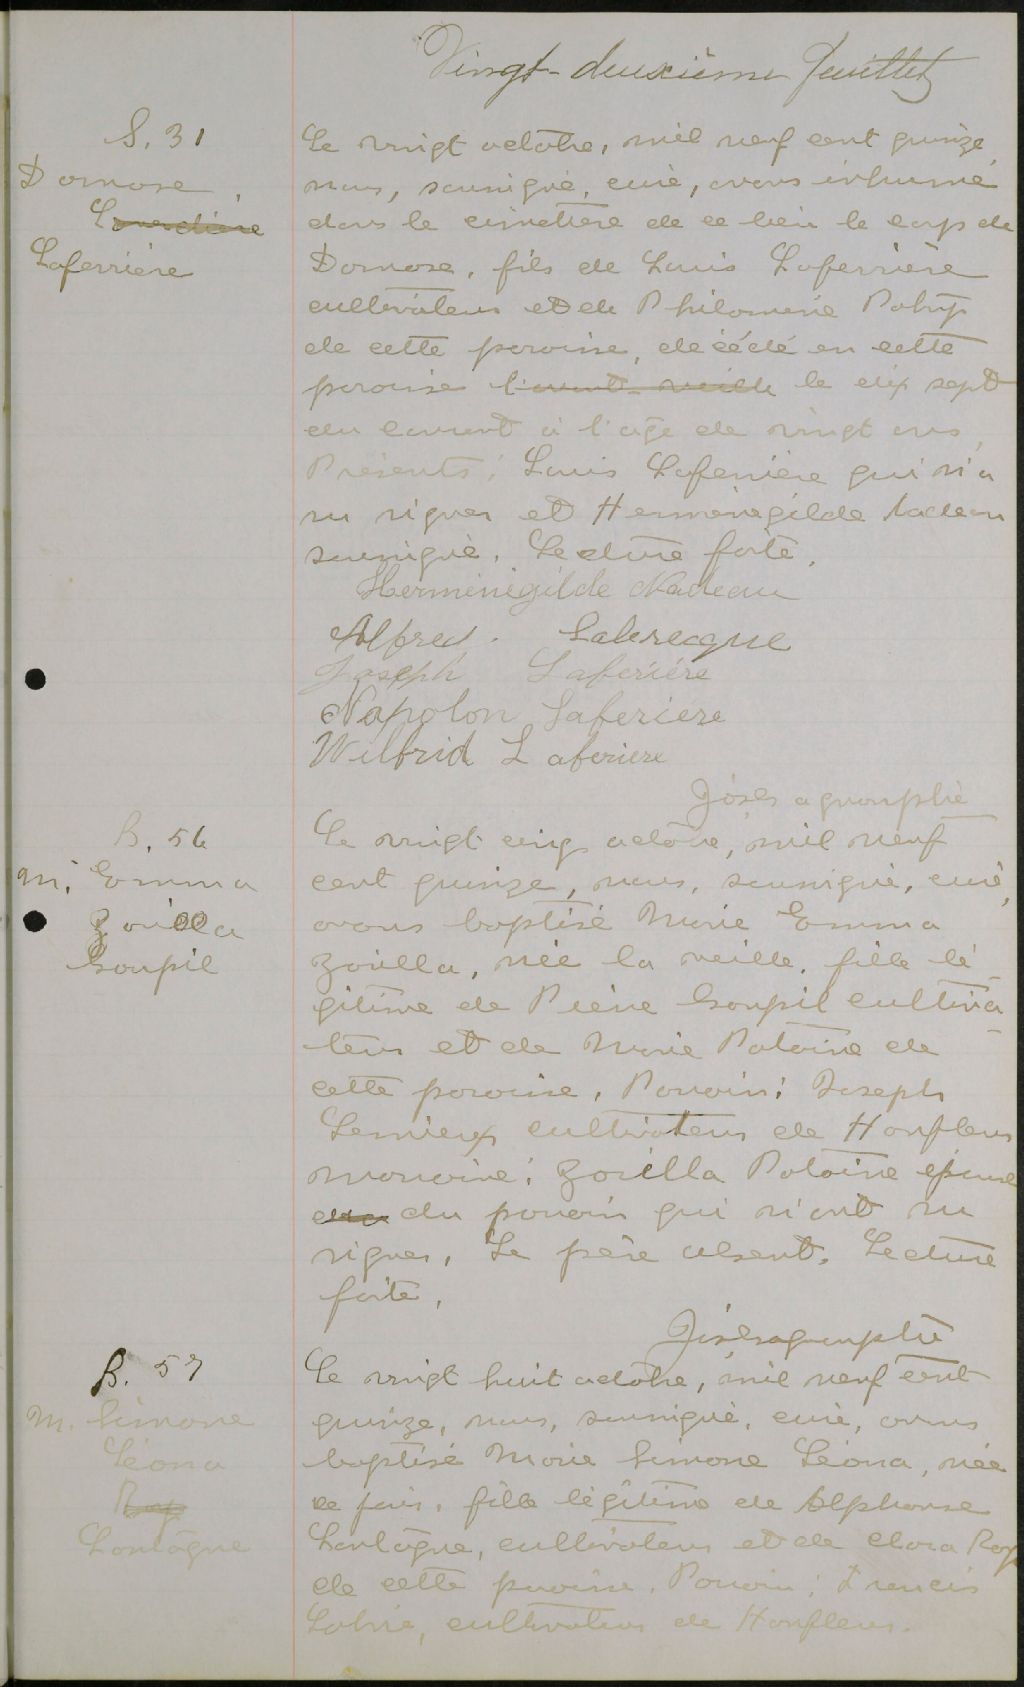 Vingt-deuxième feuillet
S. 31
Damase
Laferrière
Le vingt octobre, mil neuf cent quinze,
nous, soussigné, curé, avons inhumé
dans le cimetière de ce lieu le corps de
Damase, fils de Louis Laferrière
cultivateur et de Philomène
de cette paroisse, décédé en cette
paroisse l'avant-veille le dix sept
du courant à l'âge de vingt ans,
Présents: Louis Laferrière qui n'a
su signer et Herménégilde Nadeau
soussigné. Lecture faite.
Herménégilde Nadeau
Alfred. Labrecque
Joseph Laferière
Napolon Laferiere
Wilfrid Laferiere
B. 56
M. Emma
Zoëlla
Goupil
Le vingt cinq octobre, mil neuf
cent quinze, nous, soussigné, curé,
avons baptisé Marie Emma
Zoëlla, née la veille, fille lé-
gitime de Pierre Goupil cultiva-
teur et de Marie Patoine de
cette paroisse. Parrain: Joseph
Lemieux cultivateur de Honfleur
marraine: Zoëlla Patoine épouse
du parrain qui n'ont su
signer. Le père absent. Lecture
faite.
B. 57
M. Simone
Léona
Roy
Lontagne
Le vingt huit octobre, mil neuf cent
quinze, nous, soussigné, curé, avons
baptisé Marie Simone Léona, née
ce jour, fille légitime de Alphonse
cultivateur et de Clara Roy
de cette paroisse. Parrain: Francis
cultivateur de Honfleur.